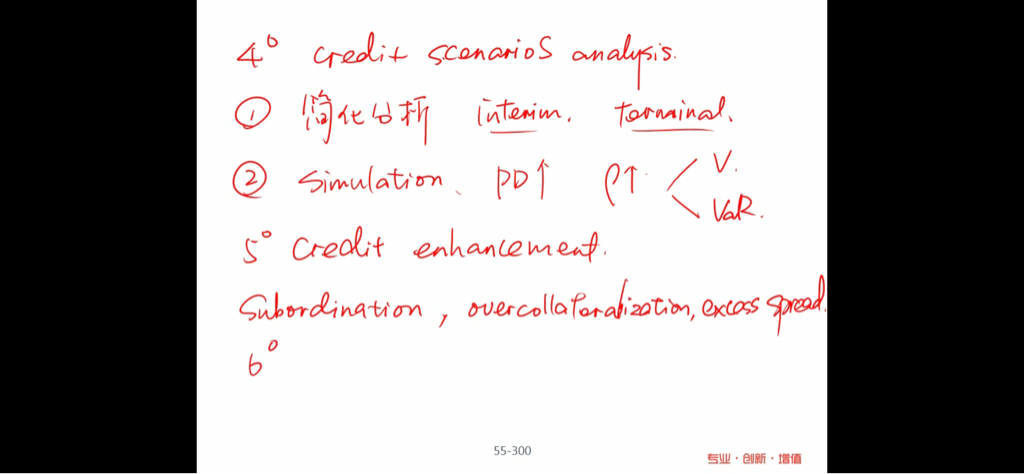 4° Credit scenarios analysis.
① 简化分析 interim. terminal.
② Simulation、 PD↑ ρ↑. V.
VaR.
5° Credit enhancement.
Subordination, overcollateralization, excess spread.
6°
55-300
专业·创新·增值